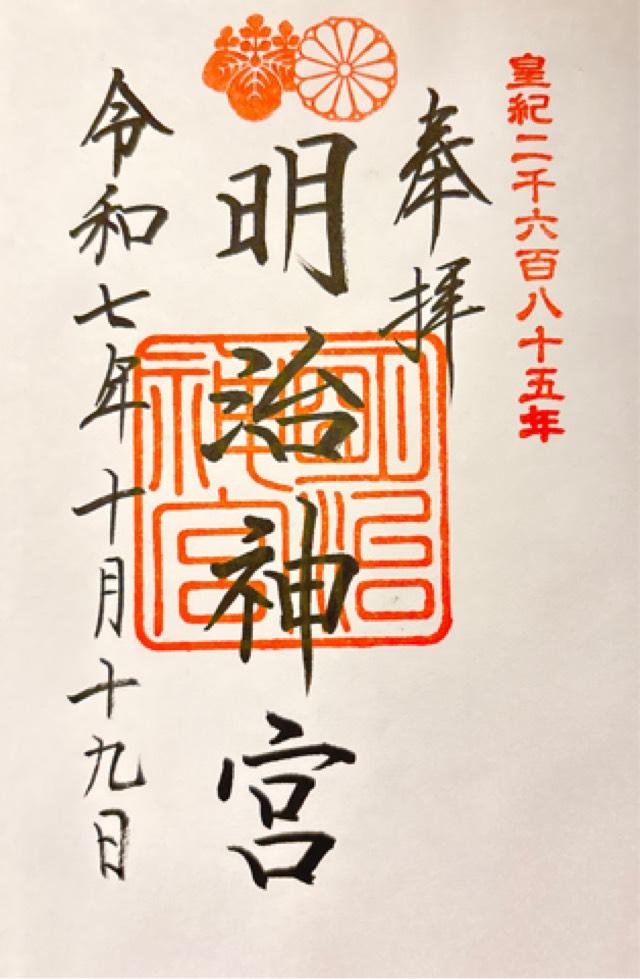 皇紀二千六百八十五年
奉拝
明治神宮
明治神宮
令和七年十月十九日